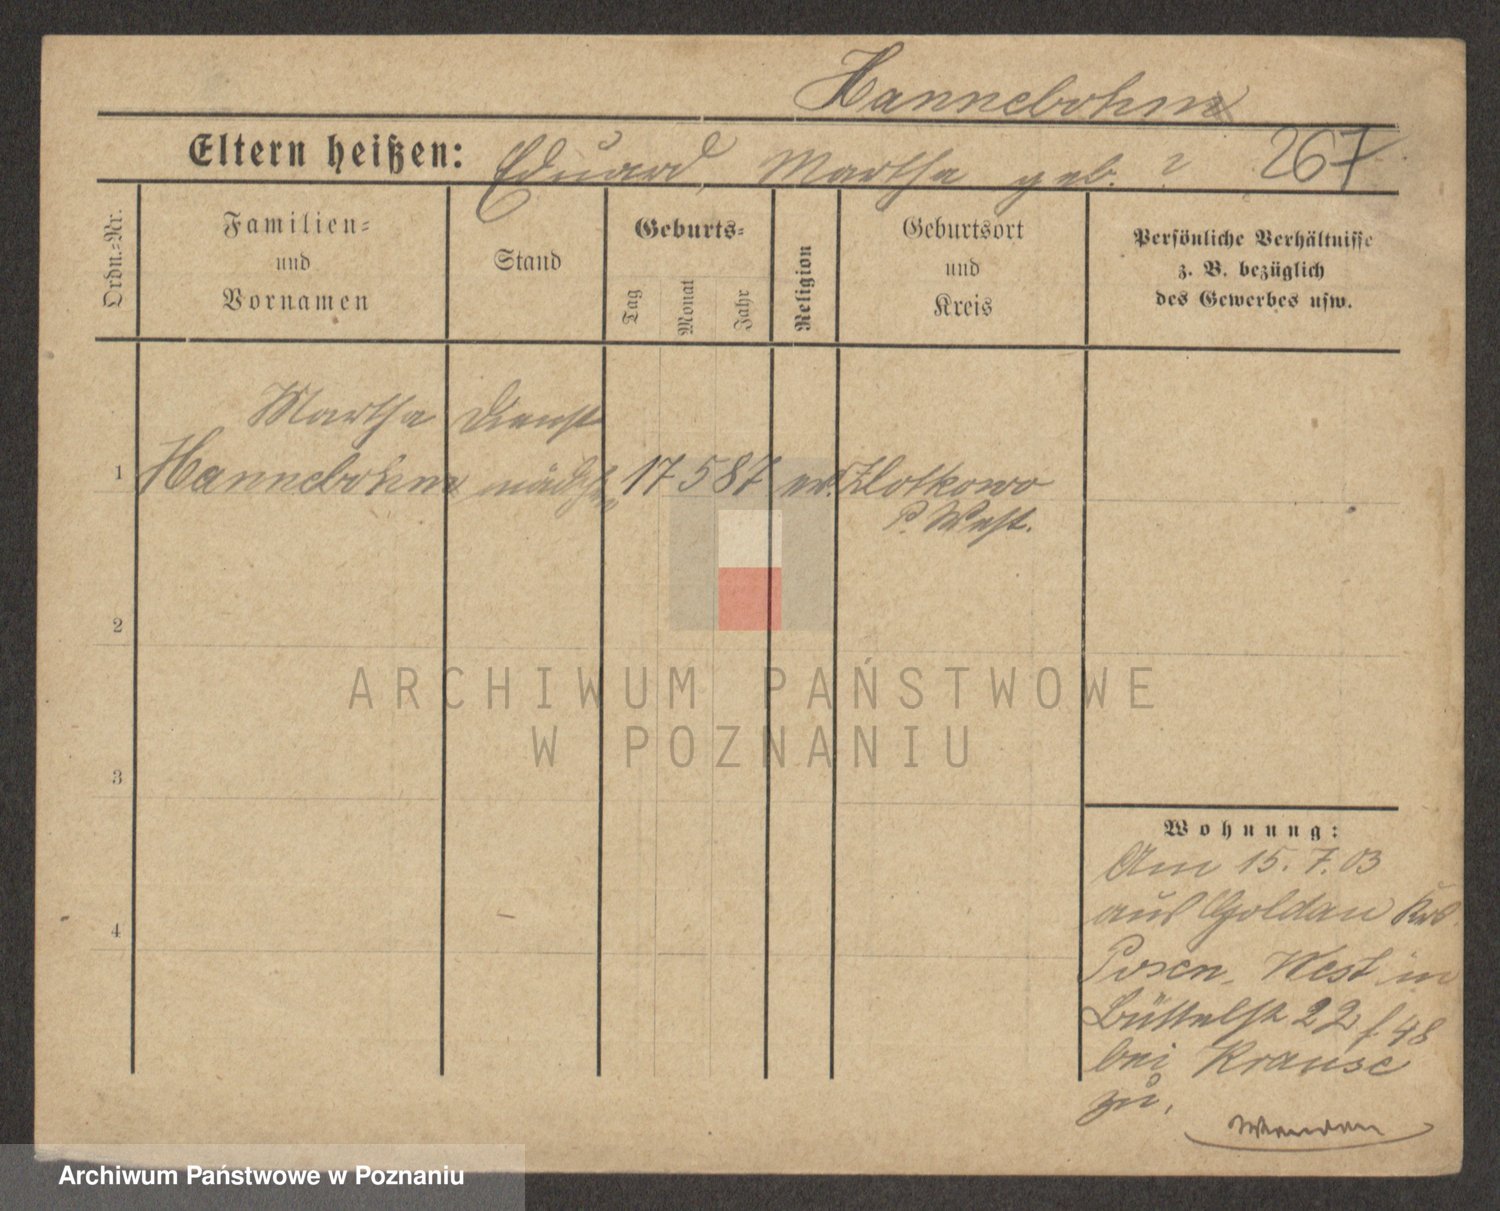 Hannebohm
Eltern heißen: Eduard, Martha geb. ? 267
Ordn.=Nr.
Familien=
und
Vornamen
Stand
Geburts=
Tag
Monat
Jahr
Religion
Geburtsort
und
Kreis
Persönliche Verhältnisse
z. B. bezüglich
des Gewerbes usw.
Martha Dienst
1 Hannebohm mädchen 17 5 87 ev. Zlotkowo
P. West.
2
ARCHIWUM PAŃSTWOWE
W POZNANIU
3
4
Wohnung:
Am 15. 7. 03
aus Goldau Krs.
Posen. West in
Büttelstr 22 f. 48
bei Krause
zu.
Archiwum Państwowe w Poznaniu